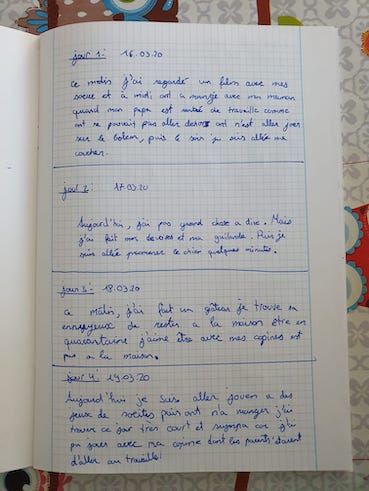 jour 1: 16.03.20
Ce matin j'ai regardé un film avec mes
soeur et à midi ont a mangée avec ma maman
quand mon papa est rentré de travaille comme
ont ne pouvait pas aller dehors ont n'est aller jouer
sur le balcon, puis le soir je suis allée me
coucher.
jour 2: 17.03.20
Aujourd'hui, j'ai pas grand chose a dire. Mais
j'ai fait mes devoires et ma guirlande. Puis je
suis allée promener le chien quelques minutes.
jour 3: 18.03.20
Ce mâtin, j'ai fait un gâteau je trouve sa
ennuyeux de rester a la maison être en
quarantaine j'aime être avec mes copines est
pas a la maison.
jour 4: 19.03.20
Aujourd'hui je suis aller jouer a des
jeux de sociétés puis ont n'a manger j'ai
trouve ce jour très court et sympa car j'ai
pu jouer avec ma copine dont les parents d'aller au travaille!